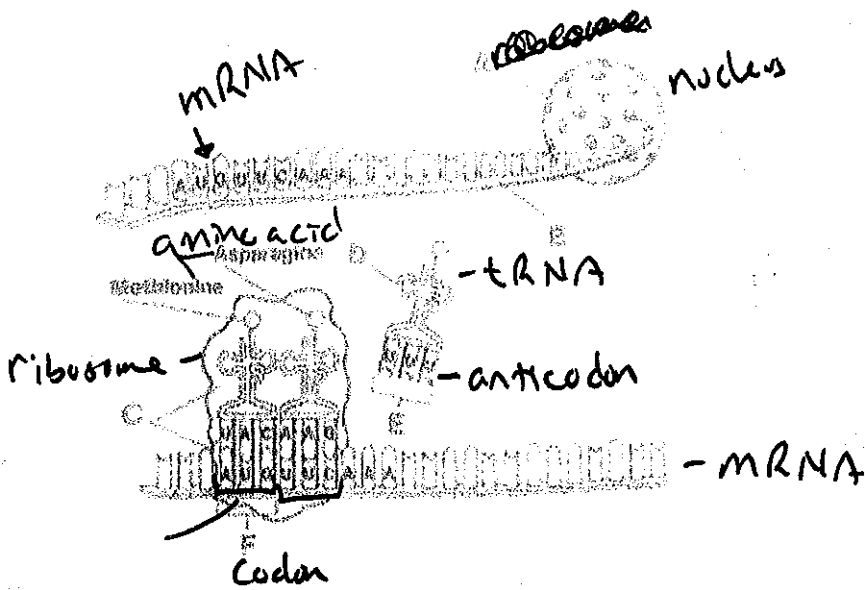 mRNA
nucleus
A U G U U C A A A
B
amino acid
Asparagine
Methionine
D
tRNA
ribosome
anticodon
U U U
E
C
U A C A A G
A U G U U C A A A
mRNA
F
codon